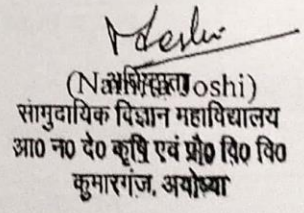 (Na Joshi)
अधिष्ठाता
सामुदायिक विज्ञान महाविद्यालय
आ0 न0 दे0 कृषि एवं प्रौ0 वि0 वि0
कुमारगंज, अयोध्या